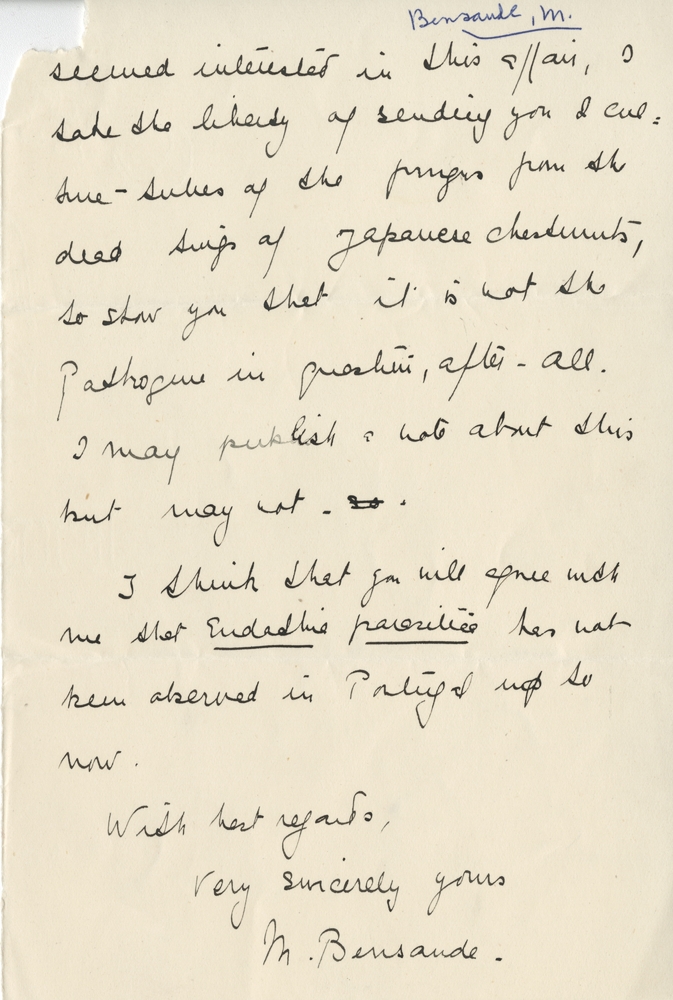 Bensaude, M.
seemed interested in this affair, I
take the liberty of sending you 2 cul=
ture-tubes of the fungus from the
dead twigs of Japanese chestnuts,
to show you that it is not the
Pathogene in question, after-all.
I may publish a note about this
but may not - so.
I think that you will agree with
me that Endothia parasitica has not
been observed in Portugal up to
now.
With best regards,
Very sincerely yours
M. Bensaude.